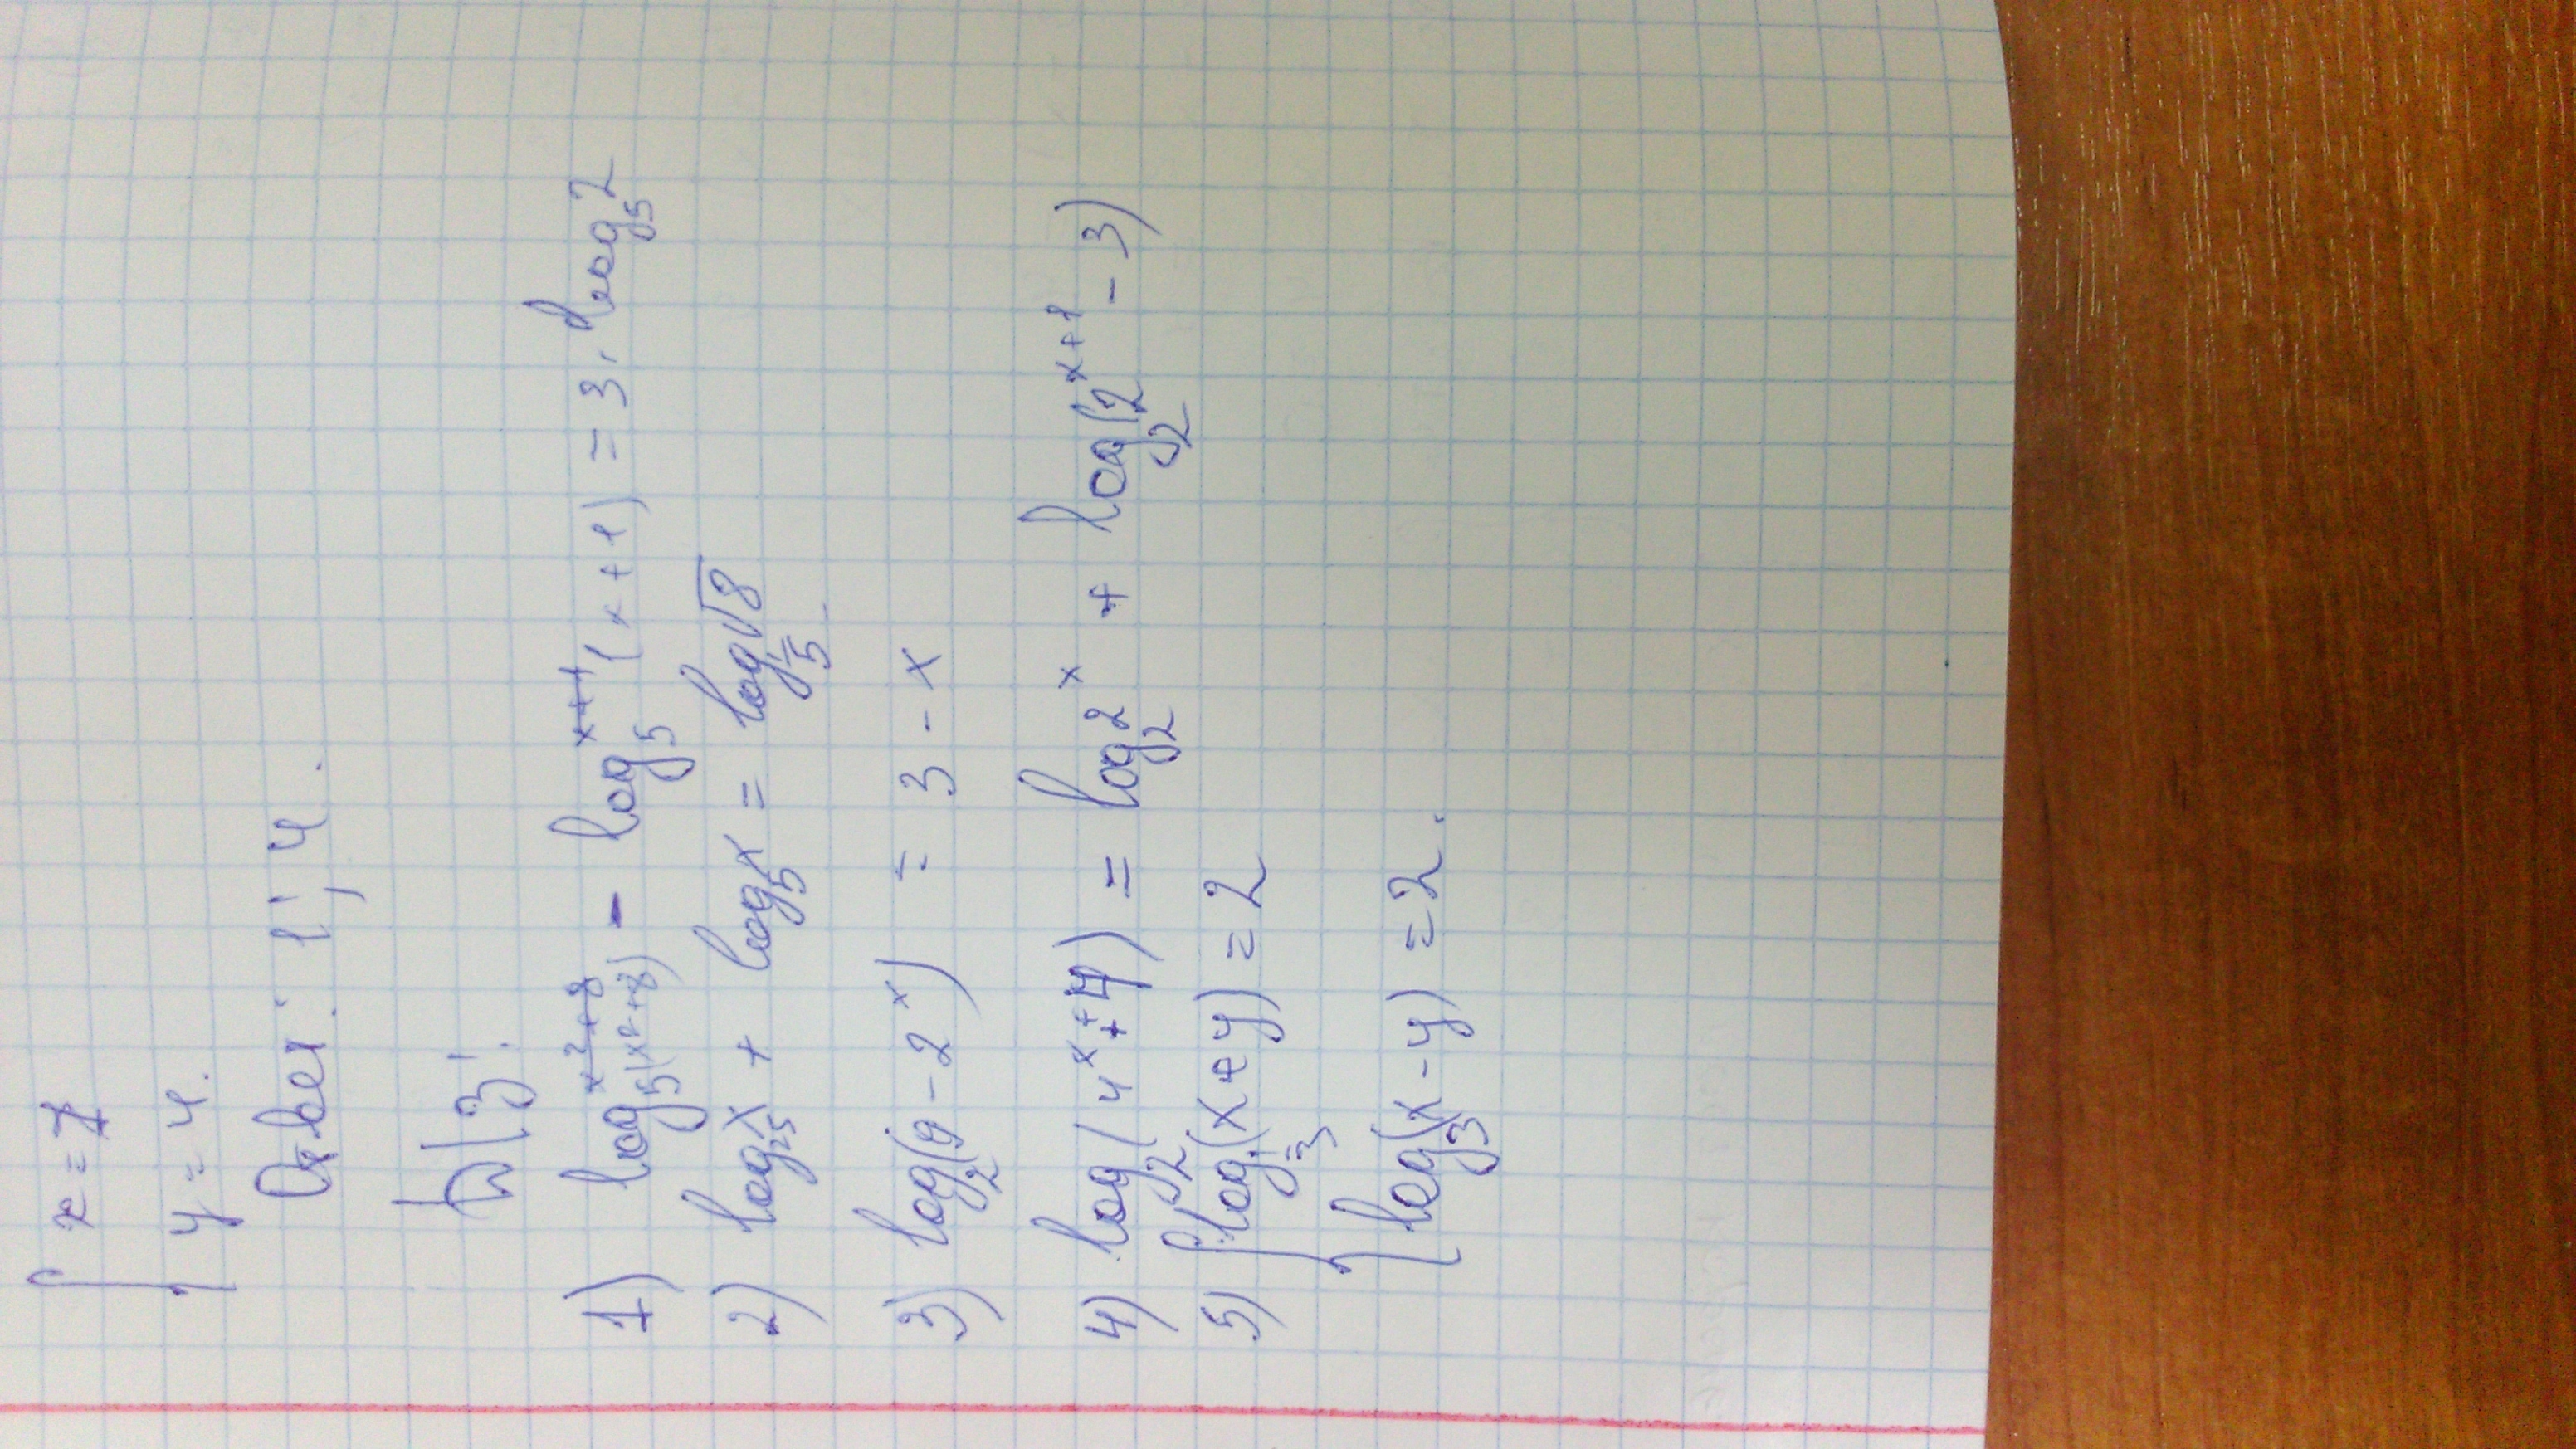 { x = 1
y = 4.
Ответ: 1; 4.
Д/З!
1) log₅(x²+8) - log₅(x+1) = 3·log₅2
2) log₂₅x + log₅x = log_{1/5}√8
3) log₂(9-2ˣ) = 3-x
4) log₂(4ˣ+4) = log₂2ˣ + log₂(2ˣ⁺¹-3)
5) { log_{1/3}(x+y) = 2
log₃(x-y) = 2.